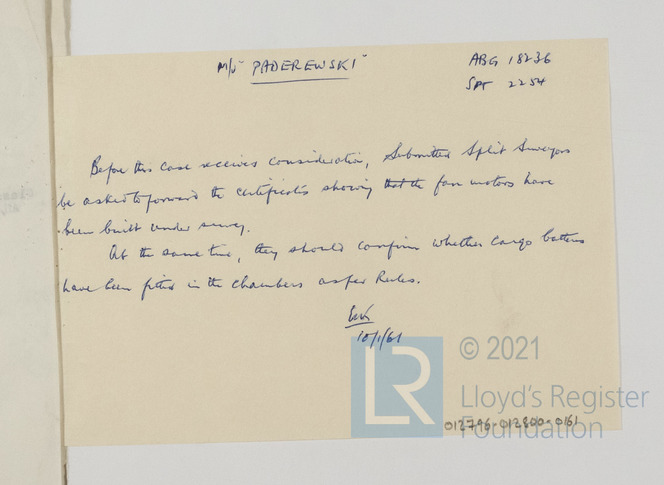 M/V "PADEREWSKI"
ABG 18236
SPT 2254
Before this case receives consideration, Submitted Split Surveyors
be asked to forward the certificates showing that the fan motors have
been built under survey.
At the same time, they should confirm whether cargo battens
have been fitted in the chambers as per Rules.
10/1/61
LR
© 2021
Lloyd's Register
Foundation
012796-012800-0161